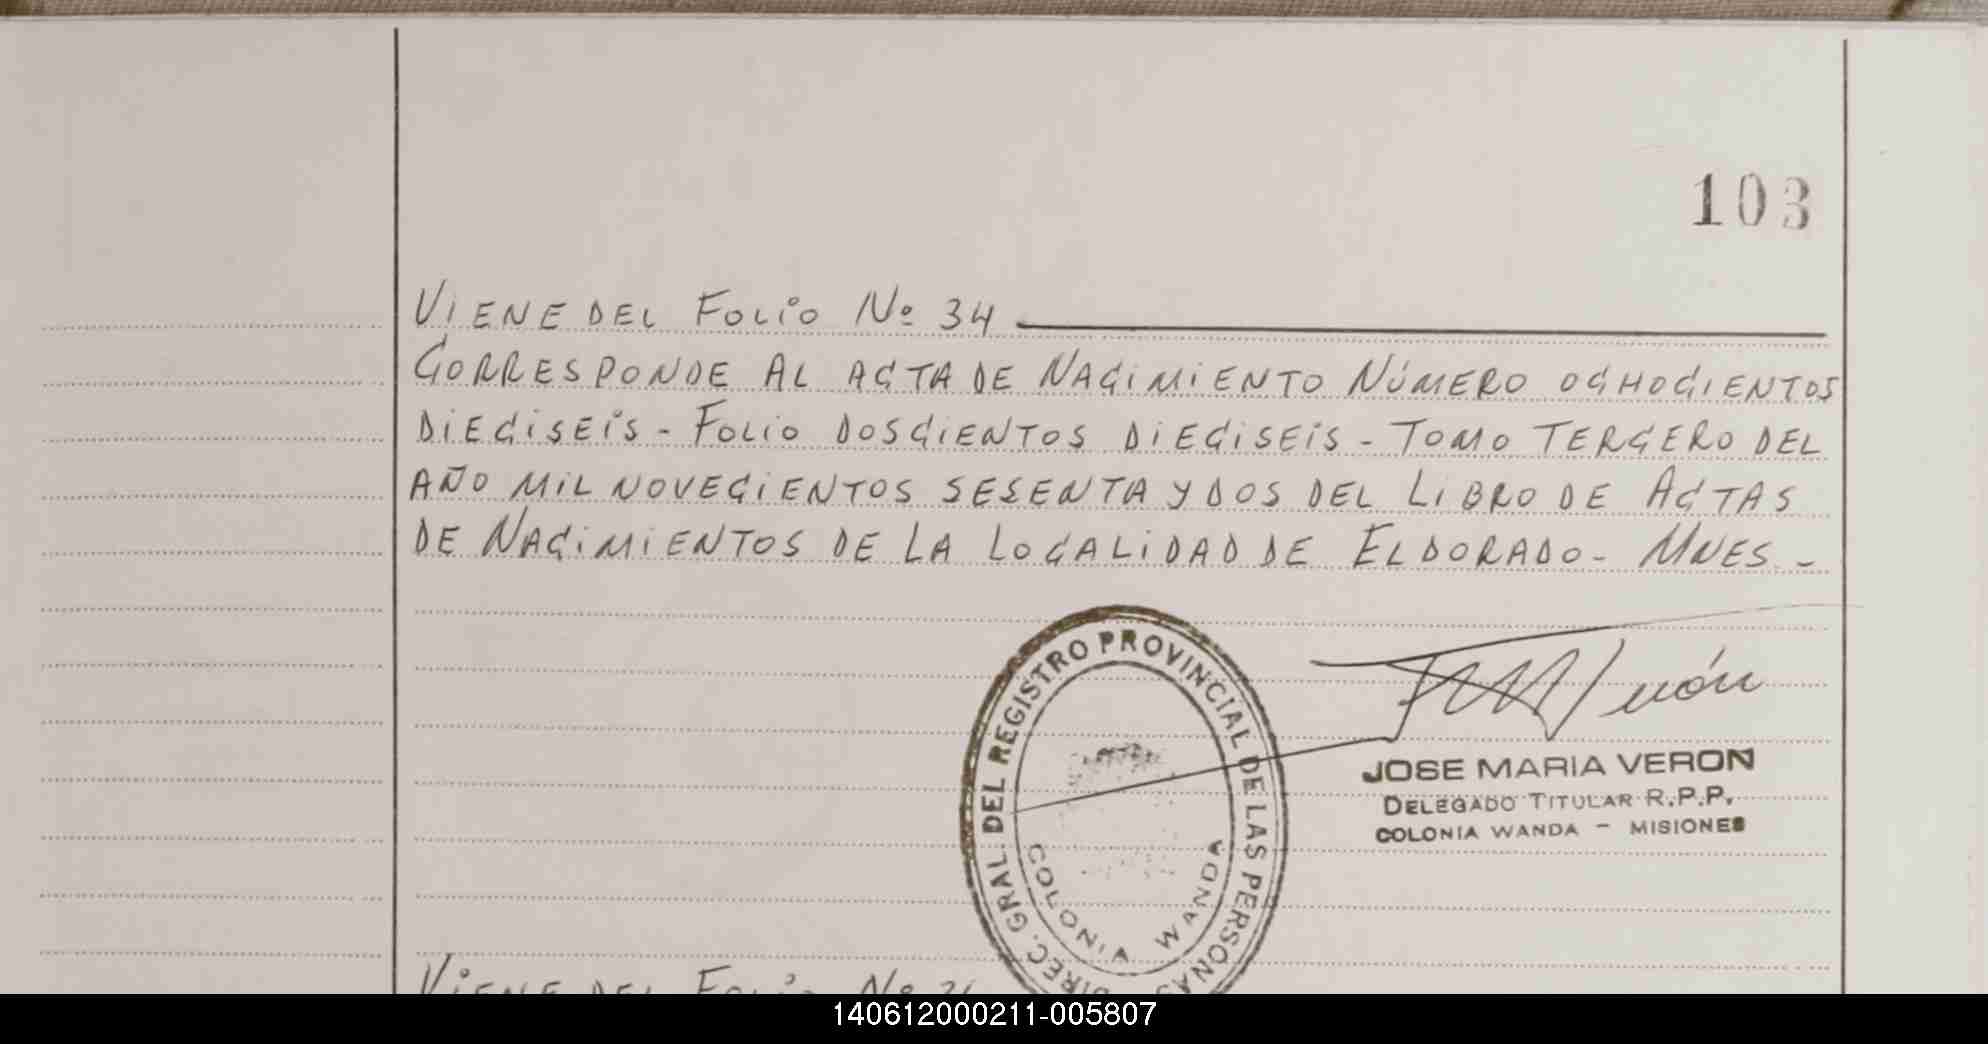 103
VIENE DEL FOLIO Nº 34
CORRESPONDE AL ACTA DE NACIMIENTO NÚMERO OCHOCIENTOS
DIECISEIS - FOLIO DOSCIENTOS DIECISEIS - TOMO TERCERO DEL
AÑO MIL NOVECIENTOS SESENTA Y DOS DEL LIBRO DE ACTAS
DE NACIMIENTOS DE LA LOCALIDAD DE ELDORADO - MNES. -
DIREC. GRAL. DEL REGISTRO PROVINCIAL DE LAS PERSONAS
COLONIA WANDA
JOSE MARIA VERON
DELEGADO TITULAR R.P.P.
COLONIA WANDA - MISIONES
VIENE DEL FOLIO Nº
140612000211-005807